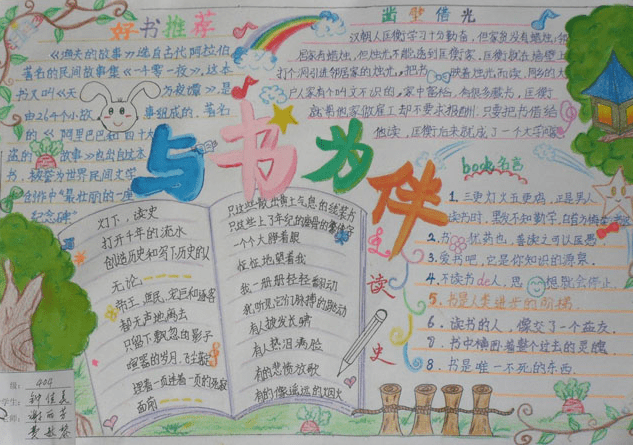 好书推荐
《渔夫的故事》选自古代阿拉伯
著名的民间故事集《一千零一夜》，这本
书又叫《天方夜谭》是
由264个小故事组成的，著名
的《阿里巴巴和四十大
盗的故事》也出自这本
书，被誉为世界民间文学
创作中"最壮丽的一座
纪念碑"
凿壁借光
汉朝人匡衡学习十分勤奋，但家贫没有蜡烛，邻
居家有蜡烛，但烛光不能透到匡家，匡衡就在墙壁上
打个洞引进邻居家的烛光，把书映着烛光而读，同乡的大
户人家有个叫文不识的，家中富裕，有很多藏书，匡衡
就募他家做雇工却不要求报酬，只要把书借给
他读，匡衡后来就成了一个大学
与书为伴
book名言
1．三更灯火五更鸡，正是男人
读书时，黑发不知勤学，白首方悔
2．书犹药也，善读之可以医愚
3．爱书吧，它是你知识的源泉．
4．不读书de人，思想就会停止．
5．书是人类进步的阶梯．
6．读书的人，像交了一个益友．
7．书中横卧着整个过去的灵魂．
8．书是唯一不死的东西．
读史
灯下，读史
打开千年的流水
创造历史和写下历史的人
无论：
帝王、庶民、宠臣和逐客
都无声地离去
只留下飘忽的影子
喧嚣的岁月，飞尘
踩着一页连着一页的
面前
只这些散出黄土气息的线装书
只这些上了年纪的
一个个睁着眼
怔怔地望着我
我一册册轻轻翻动
我听见它们脉搏的跳动
有人披发长啸
有人热泪满脸
有的悲愤放歌
有的像遥远的烟火
404